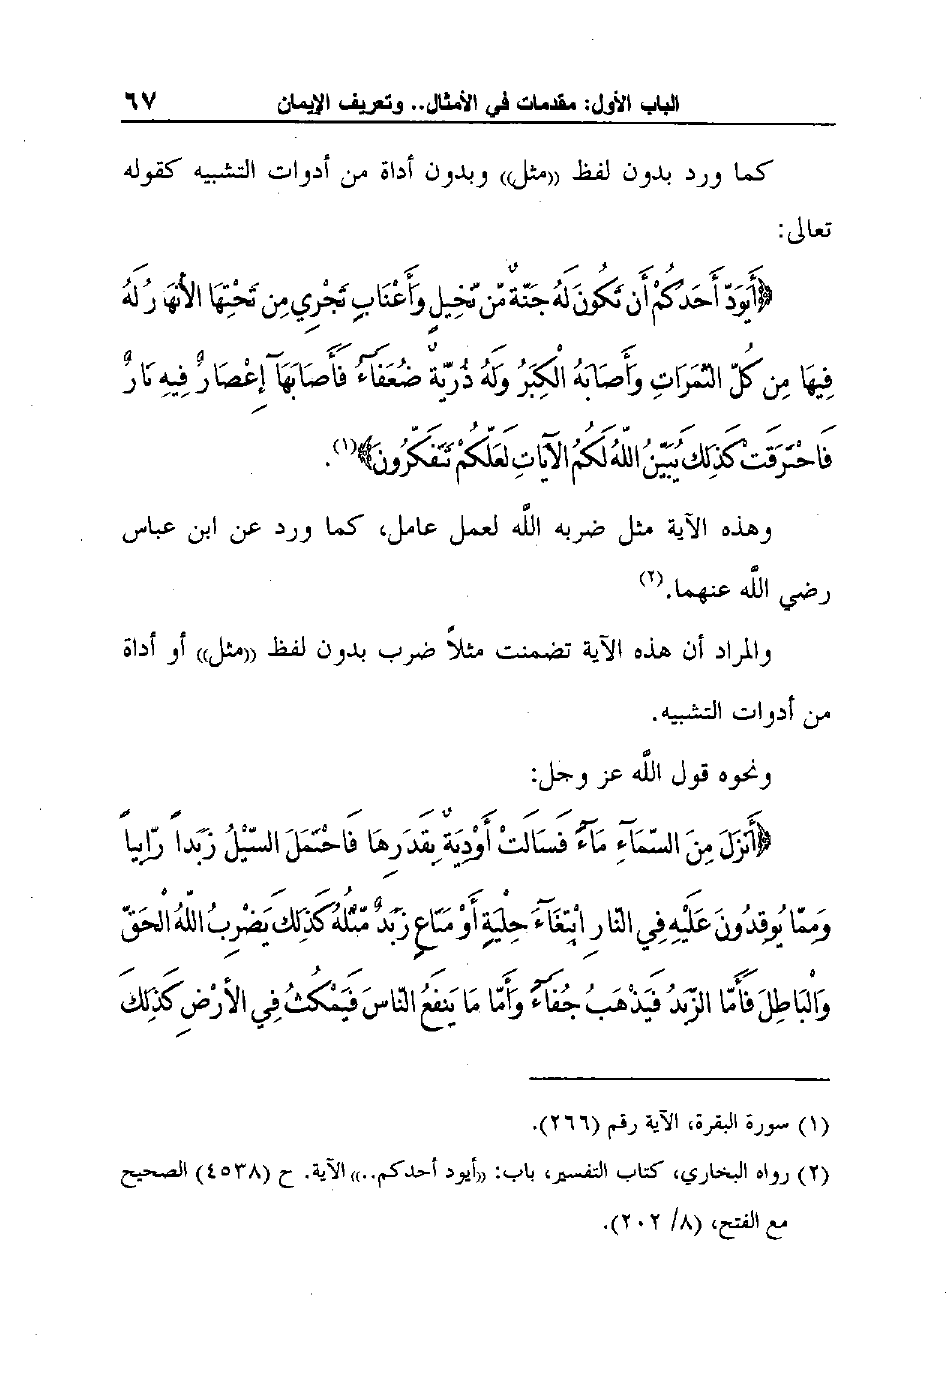 الباب الأول: مقدمات في الأمثال.. وتعريف الإيمان ٦٧
كما ورد بدون لفظ ((مثل)) وبدون أداة من أدوات التشبيه كقوله
تعالى:
﴿أَيَوَدُّ أَحَدُكُمْ أَن تَكُونَ لَهُ جَنَّةٌ مِّن نَّخِيلٍ وَأَعْنَابٍ تَجْرِي مِن تَحْتِهَا الأَنْهَارُ لَهُ
فِيهَا مِن كُلِّ الثَّمَرَاتِ وَأَصَابَهُ الْكِبَرُ وَلَهُ ذُرِّيَّةٌ ضُعَفَآءُ فَأَصَابَهَآ إِعْصَارٌ فِيهِ نَارٌ
فَاحْتَرَقَتْ كَذَلِكَ يُبَيِّنُ اللَّهُ لَكُمُ الآيَاتِ لَعَلَّكُمْ تَتَفَكَّرُونَ﴾(١).
وهذه الآية مثل ضربه اللَّه لعمل عامل، كما ورد عن ابن عباس
رضي اللَّه عنهما.(٢)
والمراد أن هذه الآية تضمنت مثلاً ضرب بدون لفظ ((مثل)) أو أداة
من أدوات التشبيه.
ونحوه قول اللَّه عز وجل:
﴿أَنزَلَ مِنَ السَّمَآءِ مَآءً فَسَالَتْ أَوْدِيَةٌ بِقَدَرِهَا فَاحْتَمَلَ السَّيْلُ زَبَداً رَّابِياً
وَمِمَّا يُوقِدُونَ عَلَيْهِ فِي النَّارِ ابْتِغَآءَ حِلْيَةٍ أَوْ مَتَاعٍ زَبَدٌ مِّثْلُهُ كَذَلِكَ يَضْرِبُ اللَّهُ الْحَقَّ
وَالْبَاطِلَ فَأَمَّا الزَّبَدُ فَيَذْهَبُ جُفَآءً وَأَمَّا مَا يَنفَعُ النَّاسَ فَيَمْكُثُ فِي الأَرْضِ كَذَلِكَ
(١) سورة البقرة، الآية رقم (٢٦٦).
(٢) رواه البخاري، كتاب التفسير، باب: ((أيود أحدكم..)) الآية. ح (٤٥٣٨) الصحيح
مع الفتح، (٨/ ٢٠٢).